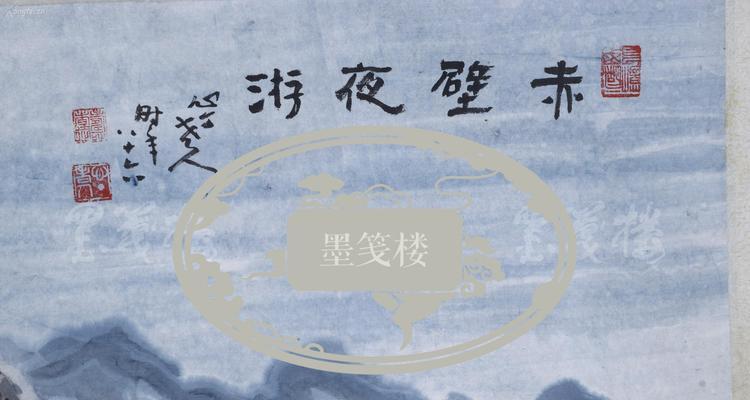 赤壁夜游
老人
时年
八十六
墨笺楼
墨笺楼
墨笺楼